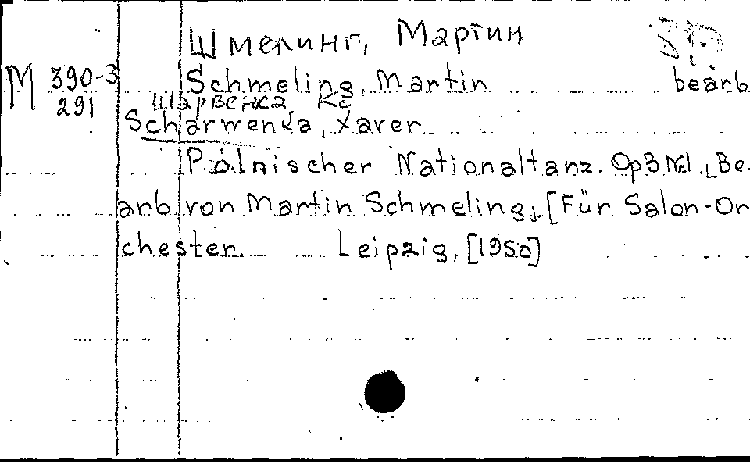 Шмелинг, Мартин
M 390-3 Schmeling, Martin bearb
291 Шарвенка, Кс
Scharwenka, Xaver
Polnischer Nationaltanz. Op 3 No1. [Be-
arb. von Martin Schmeling]. [Für Salon-Or
chester. Leipzig, [1950]